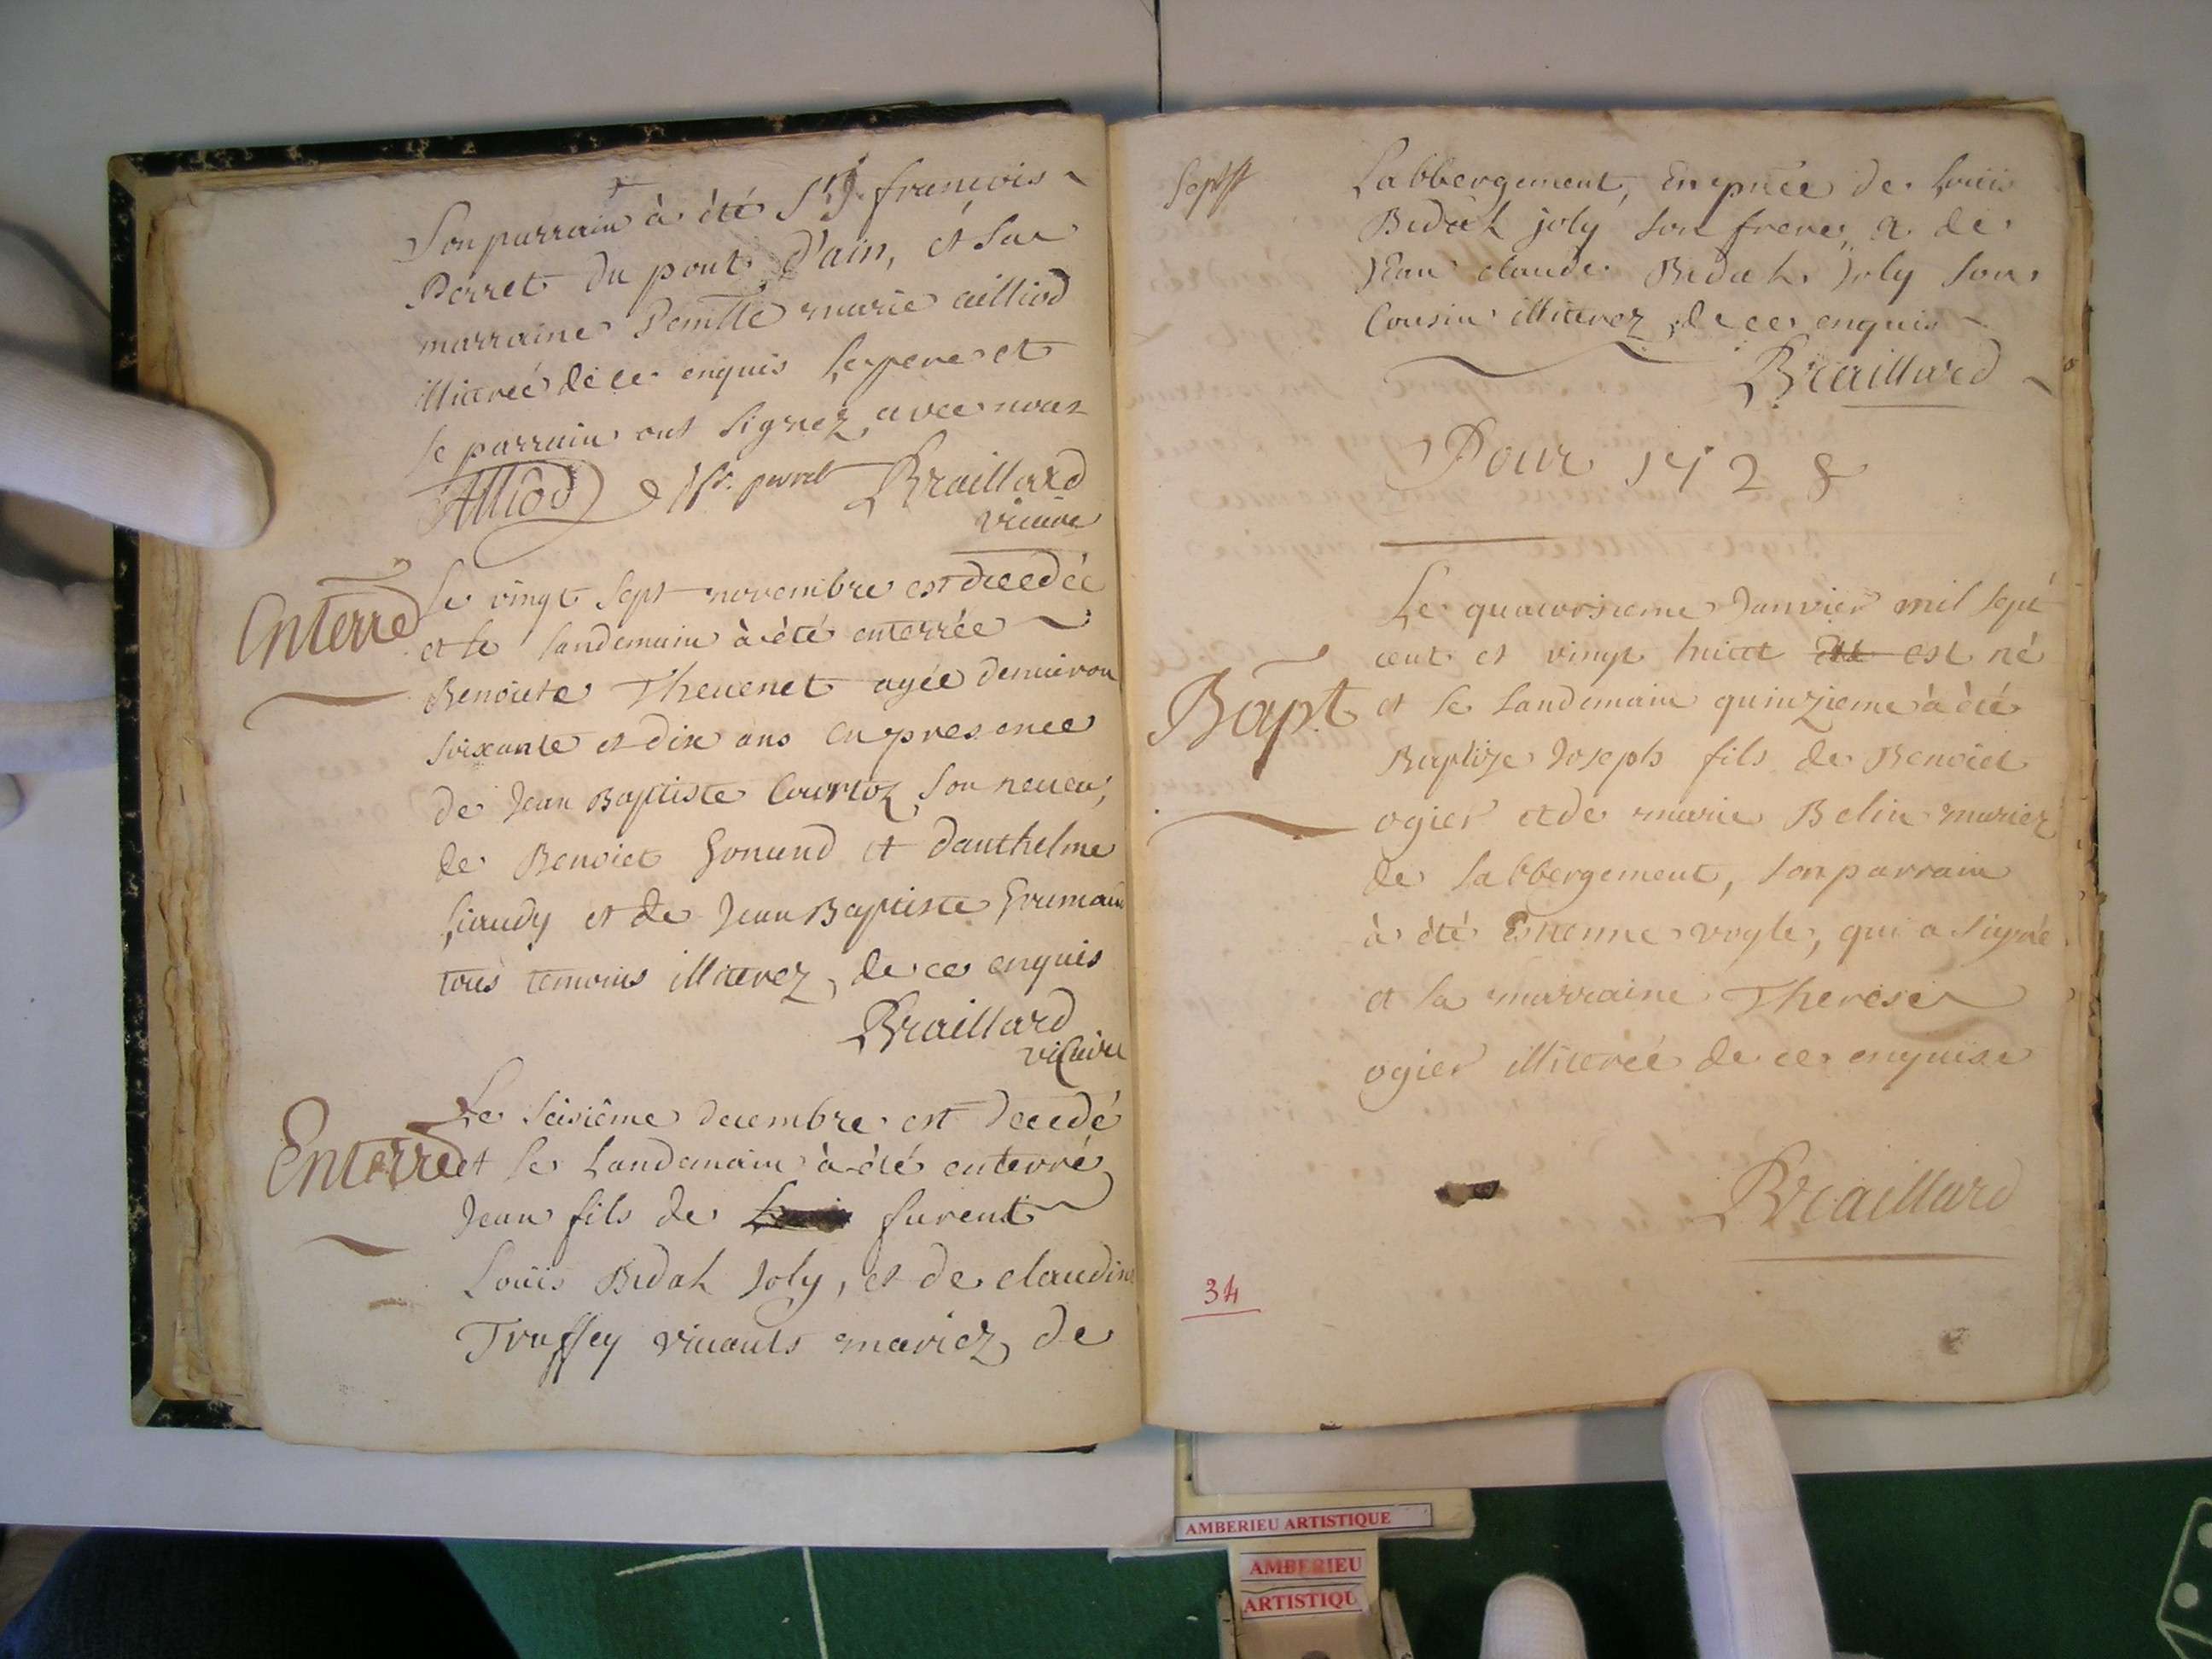 Son parrain à été Sr françois
Perret du pont d'ain, et sa
marraine Demlle marie ailliod
illiterée de ce enquis le pere et
le parrain ont signez avec nous
Alliod frs. perret Braillard
vicaire
Enterre
Le vingt sept novembre est decedée
et le landemain à été enterrée
Benoite Thevenet agée demiron
soixante et dix ans en presence
de Jean Baptiste Courtoz son neveu,
de Benoict Gonund et danthelme
Liaudy et de Jean Baptiste Grumaud
tous temoins illiterez, de ce enquis
Braillard
vicaire
Enterre
Le séisiême decembre est decedé
et le landemain à été enterré
Jean fils de furent
Louïs Bidah Joly, et de claudine
Truffey vivants mariez de
Labbergement, En pnće de Louïs
Bidah joly son frere, & de
Jean claude Bidah Joly son
Cousin illiterez, de ce enquis
Braillard
Pour 1728
Bapt
Le quatorsieme Janvier mil sept
cent et vingt huict est né
et le landemain quinzieme à été
Baptize Joseph fils de Benoict
ogier et de marie Belin mariez
de labbergement, son parrain
à été Etienne vogle, qui a signé
et la marraine Therese
ogier illiterée de ce enquise
Braillard
34
AMBERIEU ARTISTIQUE
AMBERIEU
ARTISTIQU